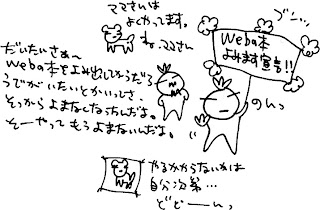 ママさんは
よくやってます。
ね ママさん
ブンッ
Weba本
よみます宣言!!
だいたいさぁ〜
Weba本をよみ出してからだろ
うでがいたいとかいっしさ、
そっからよまなくなったんだよ。
そーやってもうよまないんだよ。
のんっ
やるかやらないかは
自分次第…
どどーんっ